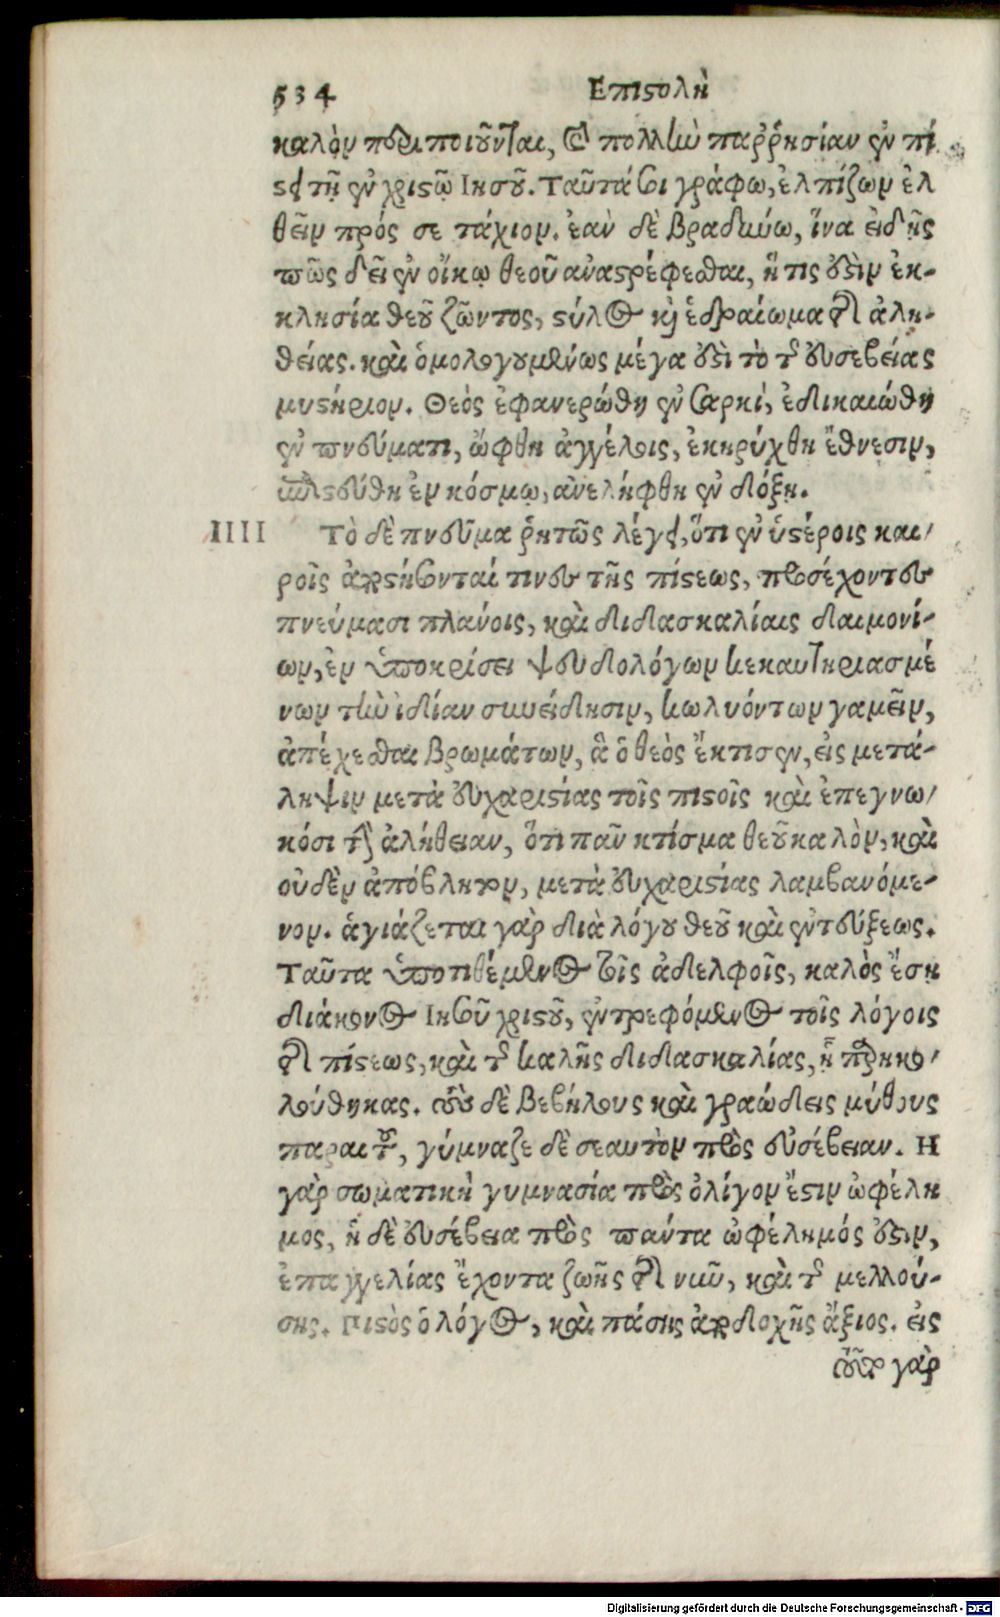 534 Επιϛολὴ
καλὸν περιποιοῦνται, καὶ πολλὴν παῤῥησίαν ἐν πί
ϛει τῇ ἐν χριϛῷ Ιησοῦ. Ταῦτά σοι γράφω, ἐλπίζων ἐλ
θεῖν πρός σε τάχιον. ἐὰν δὲ βραδύνω, ἵνα εἰδῇς
πῶς δεῖ ἐν οἴκῳ θεοῦ ἀναϛρέφεσθαι, ἥ τις ἐϛὶν ἐκ-
κλησία θεοῦ ζῶντος, ϛύλος καὶ ἑδραίωμα τῆς ἀλη-
θείας. καὶ ὁμολογουμένως μέγα ἐϛὶ τὸ τῆς εὐσεβείας
μυϛήριον. Θεὸς ἐφανερώθη ἐν σαρκὶ, ἐδικαιώθη
ἐν πνεύματι, ὤφθη ἀγγέλοις, ἐκηρύχθη ἔθνεσιν,
ἐπιϛεύθη ἐν κόσμῳ, ἀνελήφθη ἐν δόξῃ.
IIII Τὸ δὲ πνεῦμα ῥητῶς λέγει, ὅτι ἐν ὑϛέροις και/
ροῖς ἀποϛήσονταί τινες τῆς πίϛεως, προσέχοντες
πνεύμασι πλάνοις, καὶ διδασκαλίαις δαιμονί-
ων, ἐν ὑποκρίσει ψευδολόγων κεκαυτηριασμέ
νων τὴν ἰδίαν συνείδησιν, κωλυόντων γαμεῖν,
ἀπέχεσθαι βρωμάτων, ἃ ὁ θεὸς ἔκτισεν, εἰς μετά-
ληψιν μετὰ εὐχαριϛίας τοῖς πιϛοῖς καὶ ἐπεγνω/
κόσι τὴν ἀλήθειαν, ὅτι παν κτίσμα θεοῦ καλὸν, καὶ
οὐδὲν ἀπόβλητον, μετὰ εὐχαριϛίας λαμβανόμε-
νον. ἁγιάζεται γὰρ διὰ λόγου θεοῦ καὶ ἐντεύξεως.
Ταῦτα ὑποτιθέμενος τοῖς ἀδελφοῖς, καλὸς ἔσῃ
διάκονος Ιησοῦ χριϛοῦ, ἐντρεφόμενος τοῖς λόγοις
τῆς πίϛεως, καὶ τῆς καλῆς διδασκαλίας, ᾗ παρηκο/
λούθηκας. τοὺς δὲ βεβήλους καὶ γραώδεις μύθους
παραιτοῦ, γύμναζε δὲ σεαυτὸν πρὸς εὐσέβειαν. Η
γὰρ σωματικὴ γυμνασία πρὸς ὀλίγον ἔϛιν ὠφέλη
μος, ἡ δὲ εὐσέβεια πρὸς πάντα ὠφέλημός ἐϛιν,
ἐπαγγελίας ἔχοντα ζωῆς τῆς νῦν, καὶ τῆς μελλού-
σης. Πιϛὸς ὁ λόγος, καὶ πάσης ἀποδοχῆς ἄξιος. εἰς
τοῦτο γὰρ
Digitalisierung gefördert durch die Deutsche Forschungsgemeinschaft - DFG